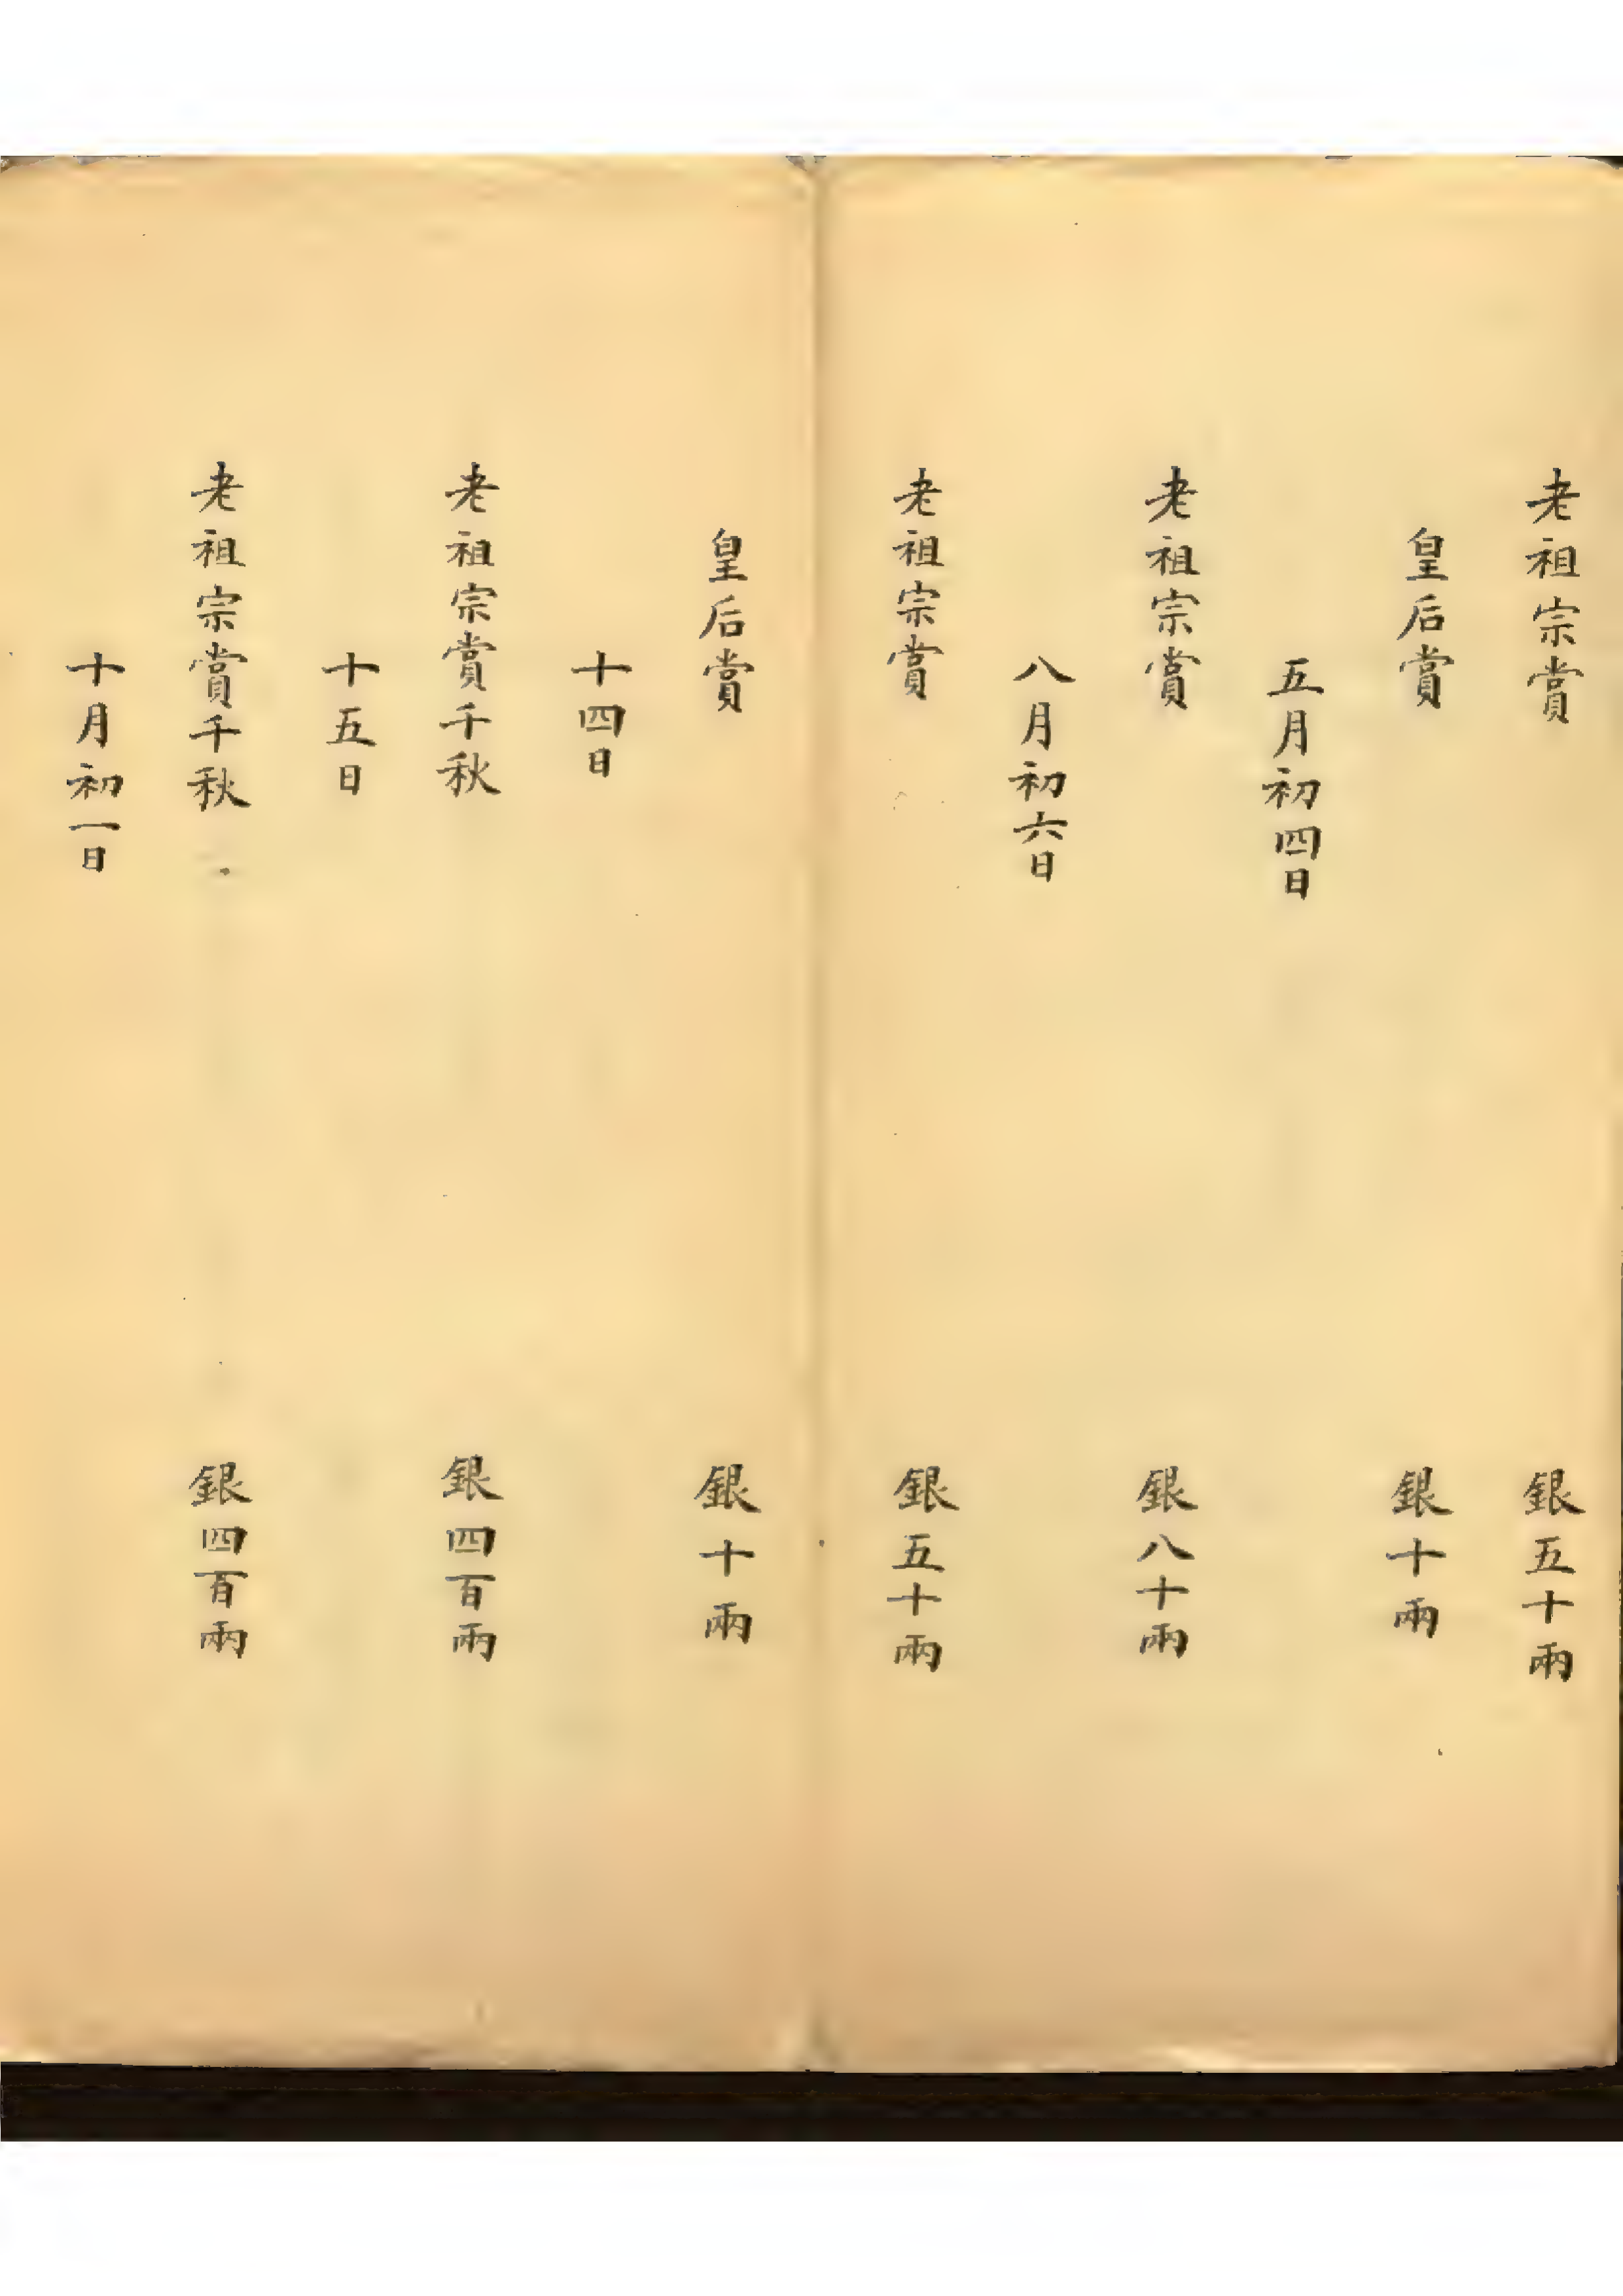 老祖宗賞 銀五十兩
皇后賞 銀十兩
五月初四日
老祖宗賞 銀八十兩
八月初六日
老祖宗賞 銀五十兩
皇后賞 銀十兩
十四日
老祖宗賞千秋 銀四百兩
十五日
老祖宗賞千秋 銀四百兩
十月初一日